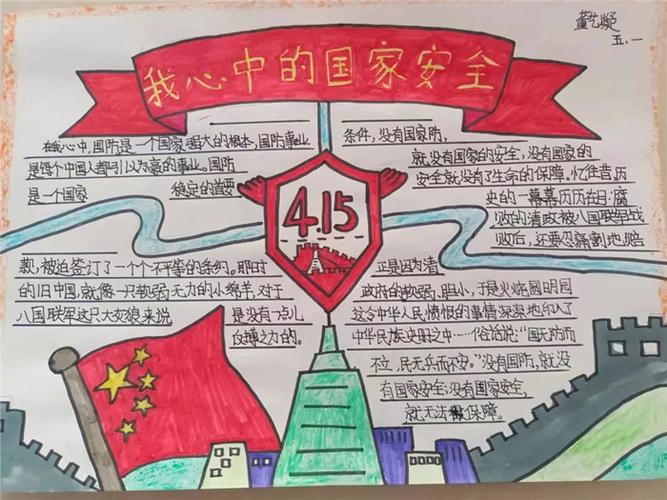 董艺凝
五、一
我心中的国家安全
在我心中,国防是一个国家强大的根本,国防事业
是每个中国人都引以为豪的事业。国防
是一个国家 稳定的首要
条件,没有国家防,
就没有国家的安全,没有国家的
安全就没有了生命的保障。忆往昔历
史的一幕幕历历在目:腐
败的清政被八国联军战
败后,还要忍痛割地、赔
4.15
款,被迫签订了一个个不平等的条约。那时
的旧中国,就像一只软弱无力的小绵羊,对于
八国联军这只大灰狼来说
是没有一点儿
反搏之力的。
正是因为清
政府的软弱、胆小,于是火烧圆明园
这令中华人民愤恨的事情深深地印入了
中华民族史册之中…俗话说:“国无防而
不立,民无兵而不安。”没有国防,就没
有国家安全;没有国家安全,
就无法保障。